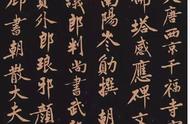 大唐西京千福寺
佛塔感應碑文
南陽岑勛撰朝
議郎判尚書武部
員外郎琅邪顏
卿書朝散大夫